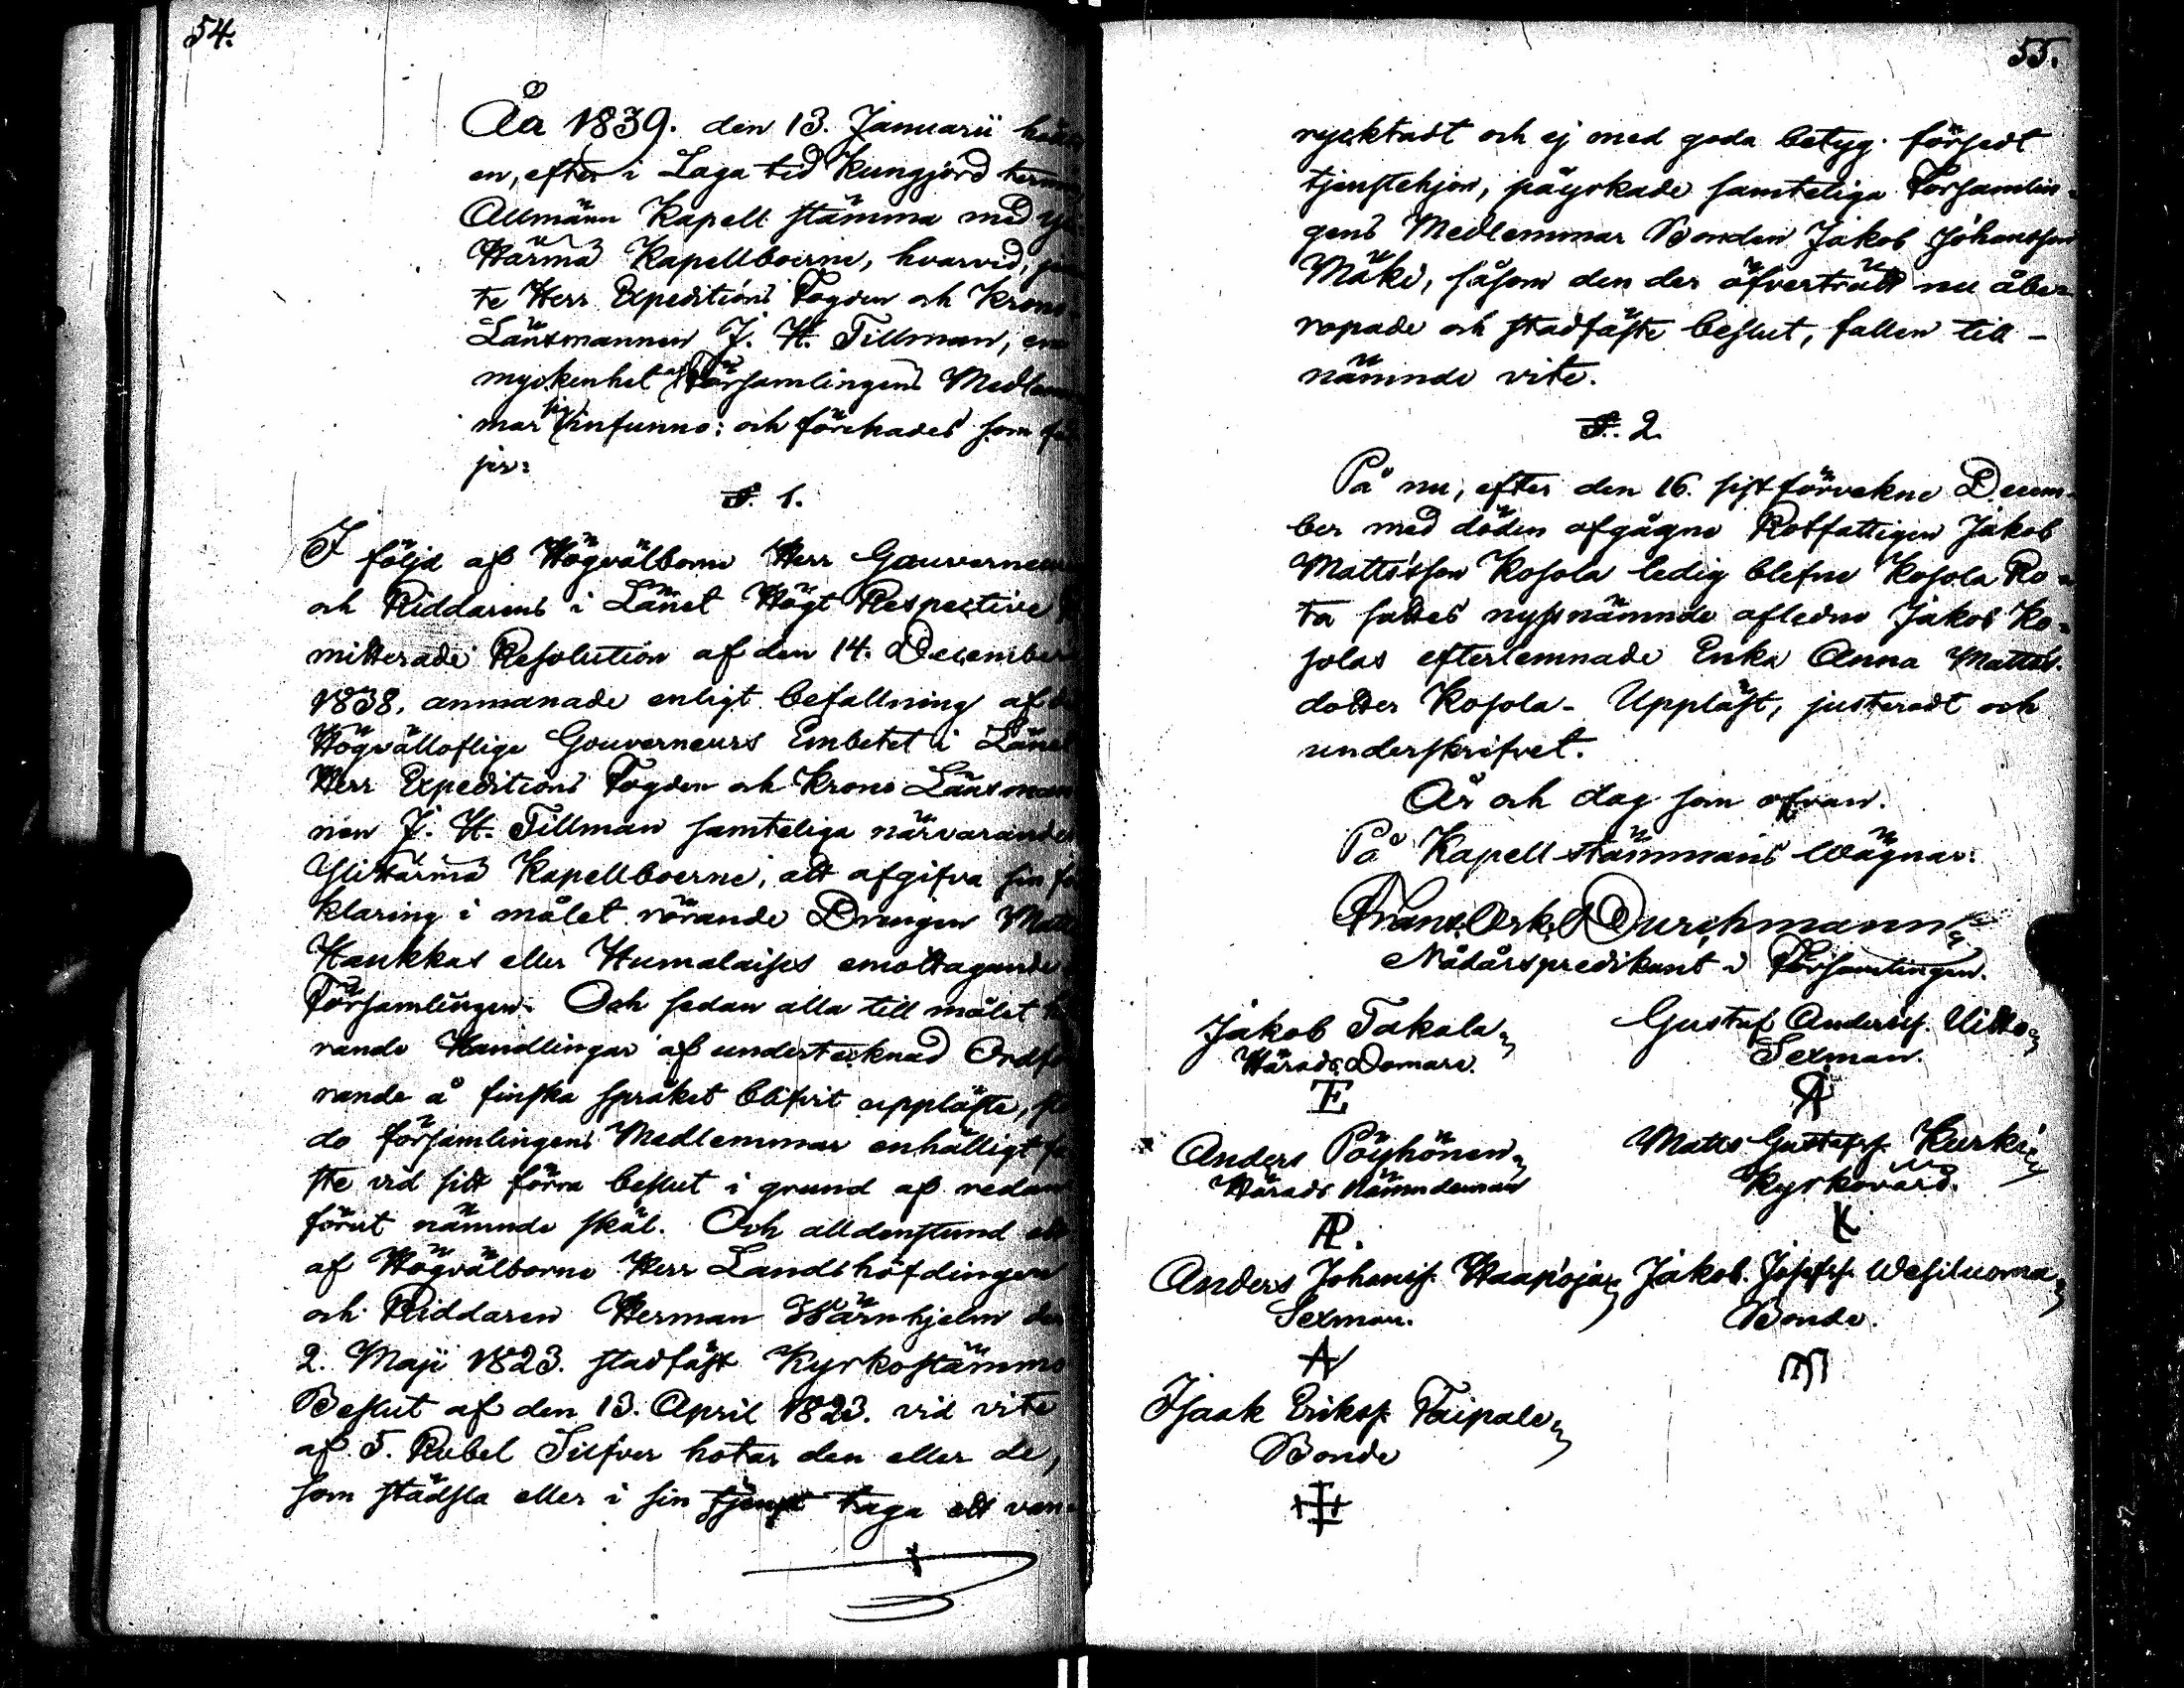 54.
År 1839. den 13. Januarii
en, efter i Laga tid Kungjord
Allmänn Kapell stämma med
Härmä Kapellboerne, hvarvid,
te Herr Expeditions Fogden och Krono-
Länsmannen J. H. Tillman, en
myckenhet af Församlingens Medlem
mar sig infunno: och förehades som föl
jer:
§. 1.
I följd af Högvälborne Herr Gouverneur
och Riddarens i Länet Högt Respective
mitterade Resolution af den 14. December
1838. anmanade enligt befallning af
Högvälloflige Gouverneurs Embetet i Länet
Herr Expeditions Fogden och Krono Länsman
nen J. H. Tillman samteliga närvarande
Ylihärmä Kapellboerne, att afgifva sin för
klaring i målet rörande Drengen Matts
Haukkas eller Humalaises emottagande i
Församlingen. Och sedan alla till målet hö
rande Handlingar af undertecknad Ordfö
rande å finska språket blifvit uppläste,
do församlingens Medlemmar enhälligt
ste vid sitt förra beslut i grund af redan
förut nämnde skäl. Och alldenstund ett
af Högvälborne Herr Landshöfdingen
och Riddaren Herman Wärnhjelm den
2. Maji 1823. stadfäst Kyrkostämmo
Beslut af den 13. April 1823. vid vite
af 5. Rubel Silfver hotar den eller de,
som städsla eller i sin tjenst taga ett van-
55.
rycktadt och ej med goda betyg försedt
tjenstehjon, påyrkade samteliga Församlin-
gens Medlemmar Bonden Jakob Johansson
Mäki, såsom den der öfverträdt nu åbe-
ropade och stadfäste beslut, fallen till -
nämnde vite.
§. 2.
På nu, efter den 16. sistförvekne Decem-
ber med döden afgågne Rotfattigen Jakob
Mattsson Kosola ledig blefne Kosola Ro-
ta sattes nyssnämnde aflednе Jakob Ko-
solas efterlemnade Enka Anna Matts-
dotter Kosola - Uppläst, justeradt och
underskrifvet.
År och dag som ofvan.
På Kapell stämmans Wägnar:
Frans Osk. Durchmann
Nådårspredikant i Församlingen.
Jakob Takala
Härads Domare.
E
Gustaf Anderss. Uitto
Sexman.
Anders Pöyhönen
Härads Nämndeman
AP.
Matts Gustafss. Kurki
Kyrkovärd.
K
Anders Johanss. Haapoja
Sexman.
A
Jakob Josefss. Wesiluoma
Bonde.
M
Isaak Erikss. Taipale
Bonde